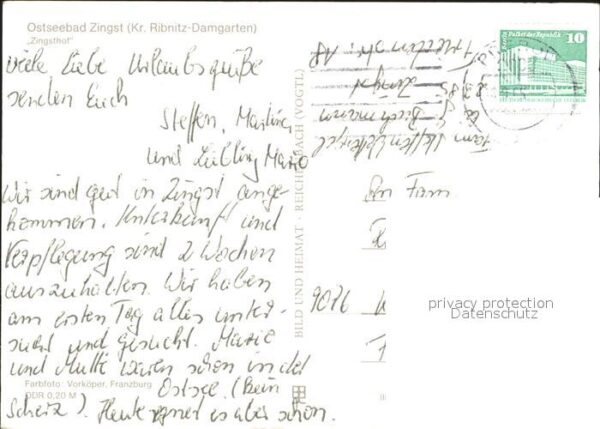 Ostseebad Zingst (Kr. Ribnitz-Damgarten)
„Zingsthof"
viele liebe Urlaubsgrüße
senden Euch
Steffen, Martina
und Liebling Mario
Wir sind gut in Zingst ange-
kommen. Unterkunft und
Verpflegung sind 2 Wochen
auszuhalten. Wir haben
am ersten Tag alles unter-
sucht und gesucht. Mario
und Mutti waren schon in der
Ostsee. (Beim
Scheiz). Heute regnet es aber schon.
Farbfoto: Vorköper, Franzburg
DDR 0,20 M
BILD UND HEIMAT - REICHENBACH (VOGTL)
Fam. Steffen
Buchmann
Zingst
10
Palast der Republik
An Fam
9076
privacy protection
Datenschutz